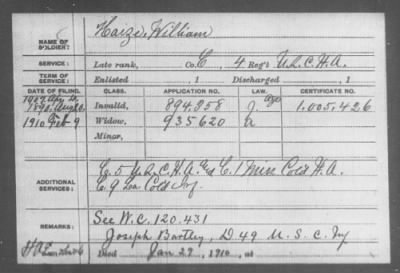 NAME OF SOLDIER:
Haize, William
SERVICE: Late rank, Co. C, 4 Reg't U.S.C.H.A.
TERM OF SERVICE: Enlisted , 1 Discharged , 1
DATE OF FILING. CLASS. APPLICATION NO. LAW. CERTIFICATE NO.
Invalid, 894.958 1.005.426
1910 Feb 9 Widow, 935620
Minor,
ADDITIONAL SERVICES:
C. 5 U.S.C.H.A. C. 1 Miss Cold H.A.
C. 9 La Cold Inf.
REMARKS:
See W.C. 120.431
Joseph Bartley, D 49 U.S.C. Inf
Died Jan 29, 1910, at